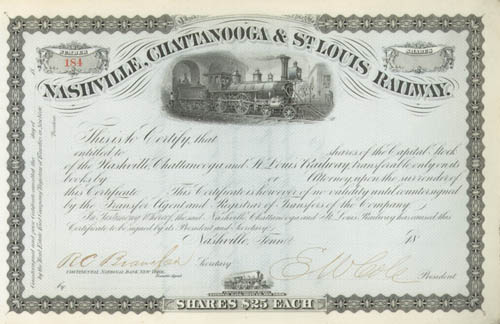 NUMBER
184
SHARES
NASHVILLE, CHATTANOOGA & ST. LOUIS RAILWAY.
This is to Certify, that
entitled to shares of the Capital Stock
of the Nashville, Chattanooga and St. Louis Railway, transferable only on its
books by or Attorney, upon the surrender of
this Certificate. This Certificate is however of no validity until countersigned
by the Transfer Agent and Registrar of Transfers of the Company.
In Testimony Whereof, the said Nashville, Chattanooga and St. Louis Railway has caused this
Certificate to be signed by its President and Secretary.
Nashville, Tenn. 18
Secretary
E W Cole
President
CONTINENTAL NATIONAL BANK, NEW YORK,
Transfer Agent
By
SHARES $25 EACH